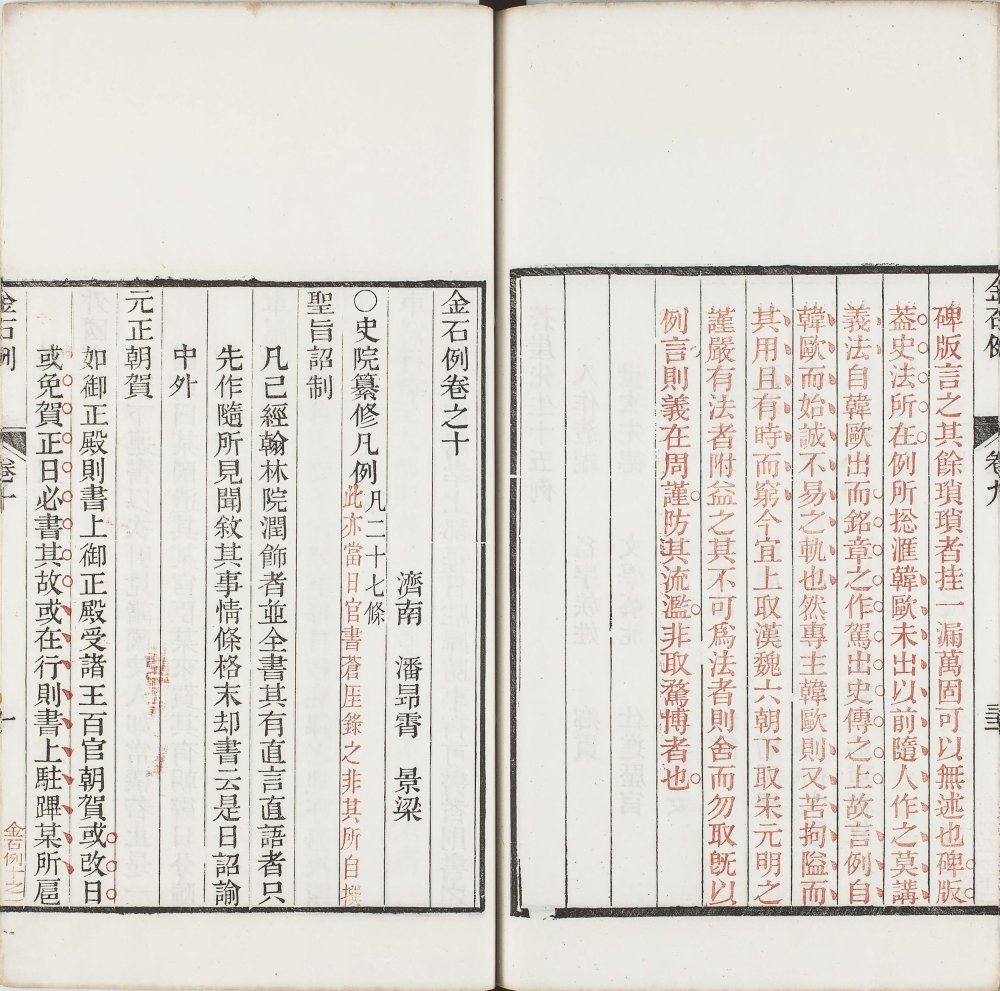 金石例
卷九
三
碑版言之其餘瑣瑣者挂一漏萬固可以無述也碑版
葢史法所在例所捴滙韓歐未出以前隨人作之莫講
義法自韓歐出而銘章之作駕出史傳之上故言例自
韓歐而始誠不易之軌也然專主韓歐則又苦拘隘而
其用且有時而窮今宜上取漢魏六朝下取宋元明之
謹嚴有法者附益之其不可爲法者則舍而勿取旣以
例言則義在周謹防其流濫非取驁博者也
金石例卷之十
濟南　潘昻霄　景梁
〇史院纂修凡例凡二十七條
此亦當日官書蒼厓錄之非其所自撰
聖旨詔制
凡已經翰林院潤飾者並全書其有直言直語者只
先作隨所見聞敘其事情條格末却書云是日詔諭
中外
元正朝賀
如御正殿則書上御正殿受諸王百官朝賀或改日
或免賀正日必書其故或在行則書上駐蹕某所扈
金石例
卷十
一
金石例十之一